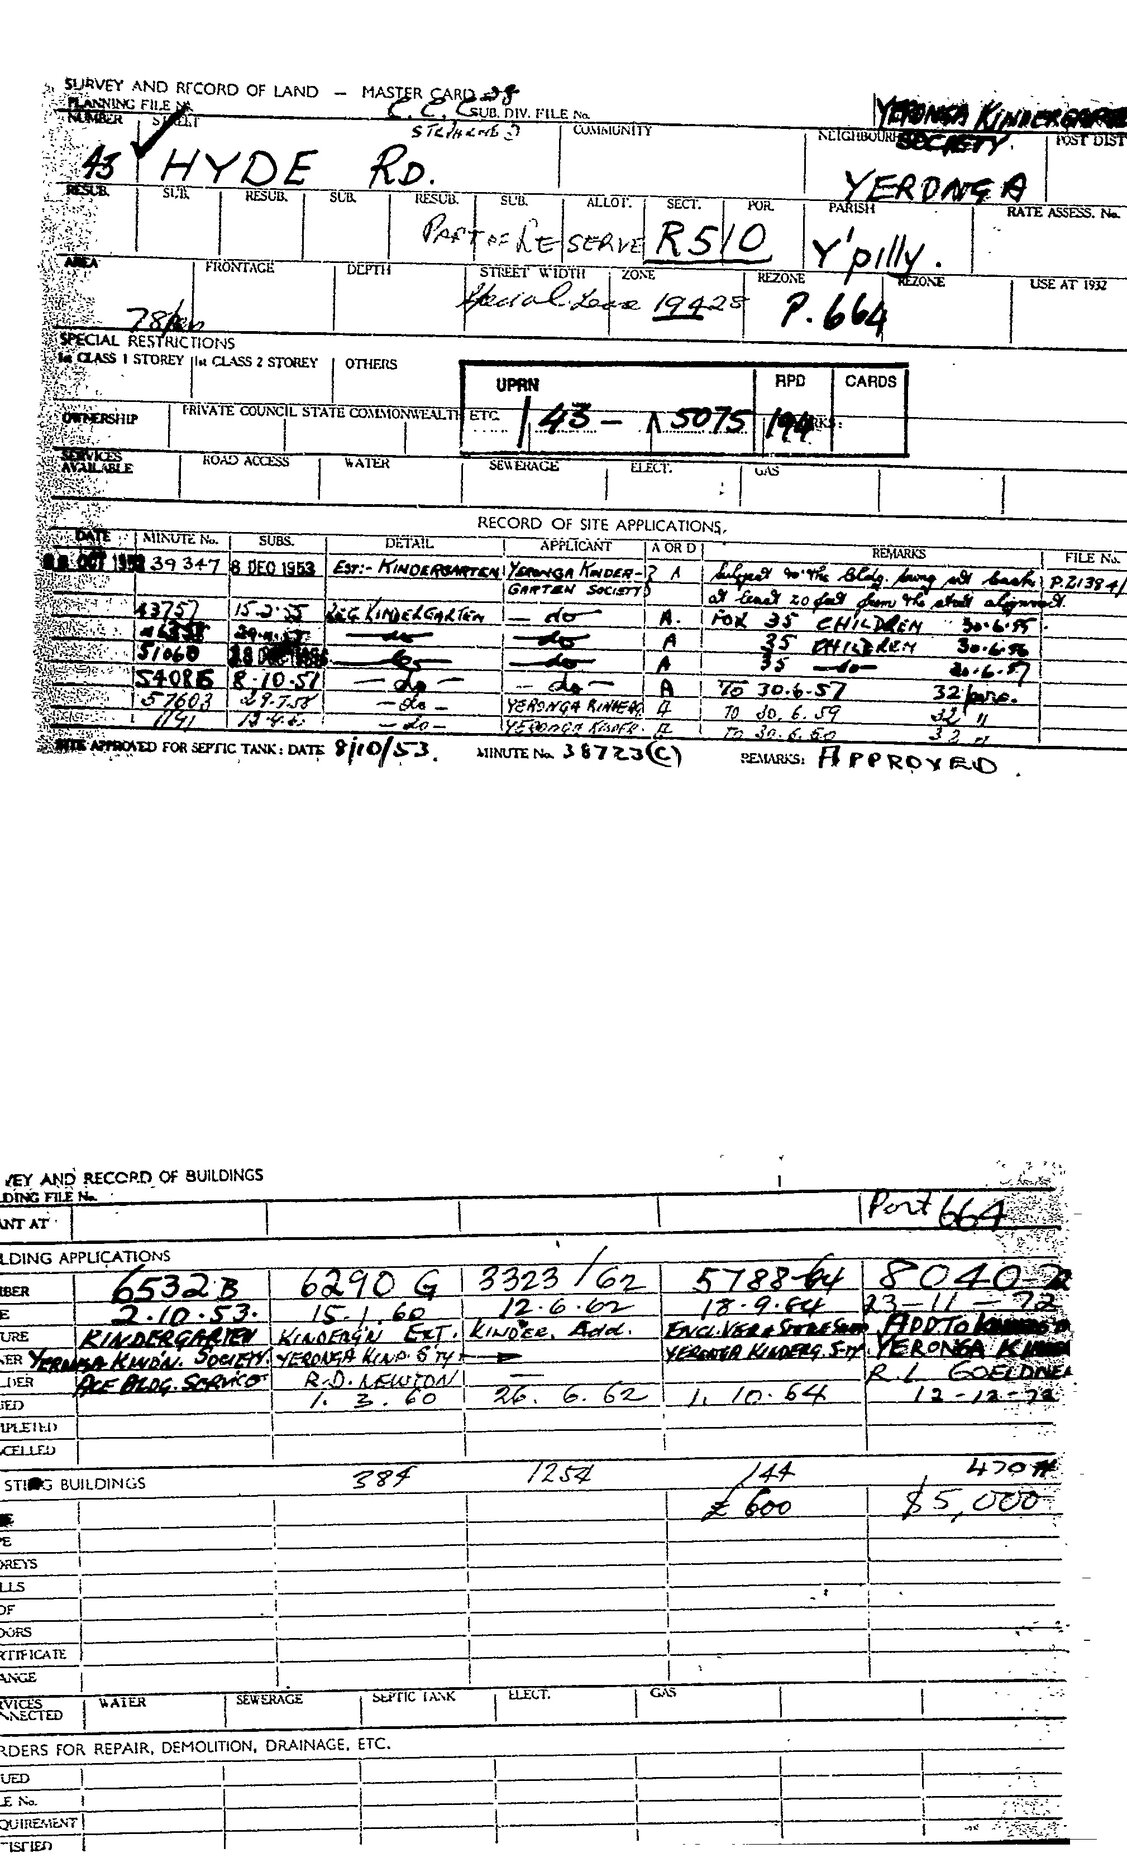 SURVEY AND RECORD OF LAND — MASTER CARD
PLANNING FILE No. C.E.C. SUB. DIV. FILE No. YERONGA KINDERGARTEN
NUMBER STREET COMMUNITY NEIGHBOURH SOCIETY. POST DIST
43 HYDE RD. YERONGA
RESUB. SUB. RESUB. SUB. RESUB. SUB. ALLOT. SECT. POR. PARISH RATE ASSESS. No.
PART OF RESERVE R510 Y'pilly.
AREA FRONTAGE DEPTH STREET WIDTH ZONE REZONE REZONE USE AT 1932
Special Lease 19428 P.664
SPECIAL RESTRICTIONS
1st CLASS 1 STOREY 1st CLASS 2 STOREY OTHERS
UPRN RPD CARDS
OWNERSHIP PRIVATE COUNCIL STATE COMMONWEALTH ETC. 43 — 5075 194
SERVICES AVAILABLE ROAD ACCESS WATER SEWERAGE ELECT. GAS
RECORD OF SITE APPLICATIONS,
DATE MINUTE No. SUBS. DETAIL APPLICANT A OR D REMARKS FILE No.
OCT 1953 39347 8 DEC 1953 EST:- KINDERGARTEN YERONGA KINDER- A Subject to the Bldg. being set back P.21384/
GARTEN SOCIETY at least 20 feet from the street alignment.
43757 15.2.55 REG. KINDERGARTEN — do A. FOR 35 CHILDREN 30.6.55.
— do — — do — A 35 CHILDREN 30.6.56
51060 — do — — do — A 35 — do — 30.6.57
54085 8.10.57 — do — — do A TO 30.6.57 32
57603 29.7.58 — do — YERONGA KINDERG A TO 30.6.59 32 "
1191 — do — YERONGA KINDER. A TO 30.6.60 32 "
SITE APPROVED FOR SEPTIC TANK: DATE 8/10/53. MINUTE No. 38723(C) REMARKS: APPROVED.
VEY AND RECORD OF BUILDINGS
LDING FILE No.
ANT AT Port 664
LDING APPLICATIONS
BER 6532 B 6290 G 3323/62 5788-64 8040-2
E 2.10.53. 15.1.60 12.6.62 18.9.64 23-11-72
URE KINDERGARTEN KINDERG'N EXT. KINDER. Add. ENCL. VER & STORE ADD TO
ER YERONGA KIND'N. SOCIETY. YERONGA KIND. S'TY YERONGA KINDERG. S'TY YERONGA
LDER ACE BLDG. SERVICE R.D. NEWTON — R. L GOELDNE
UED 1. 3. 60 26. 6. 62 1. 10. 64 12-12-72
MPLETED
CELLED
STING BUILDINGS 384 1254 144 470
£600 $5,000
PE
OREYS
LLS
OF
OORS
RTIFICATE
ANGE
VICES WATER SEWERAGE SEPTIC TANK ELECT. GAS
NNECTED
RDERS FOR REPAIR, DEMOLITION, DRAINAGE, ETC.
UED
LE No.
QUIREMENT
TISFIED